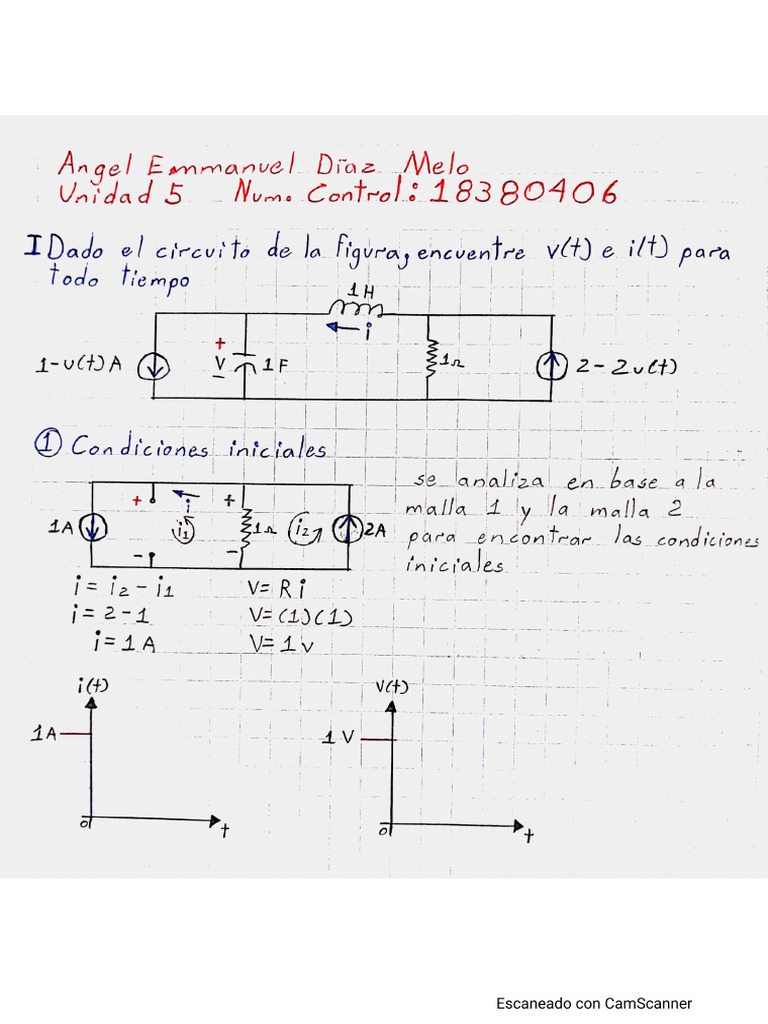 Angel Emmanuel Díaz Melo
Unidad 5 Num. Control: 18380406
I Dado el circuito de la figura, encuentre v(t) e i(t) para
todo tiempo
1H
i
1-u(t) A
+
V
-
1F
1Ω
2-2u(t)
① Condiciones iniciales
se analiza en base a la
malla 1 y la malla 2
para encontrar las condiciones
iniciales
1A
+
-
i
i1
+
1Ω
-
i2
2A
i = i2 - i1 V= Ri
i = 2 - 1 V= (1)(1)
i = 1 A V= 1 v
i(t) V(t)
1A 1 V
0 t 0 t
Escaneado con CamScanner